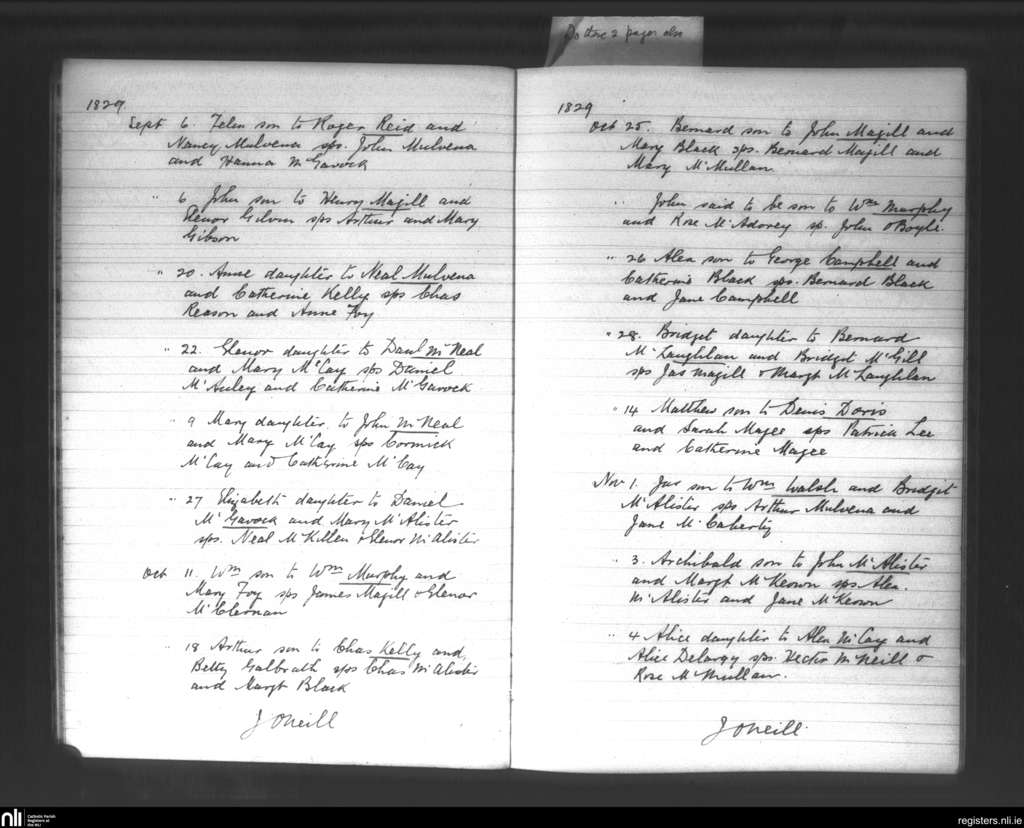 Do these 2 pages also
1829
Sept 6. Felix son to Roger Reid and
Nancy Mulvena sps. John Mulvena
and Hanna McGavock
" 6 John son to Henry Magill and
Elenor Gilvin sps Arthur and Mary
Gibson
" 20. Anne daughter to Neal Mulvena
and Catherine Kelly sps Chas
Reason and Anne Foy
" 22. Elenor daughter to Danl McNeal
and Mary McCay sps Daniel
McAuley and Catherine McGavock
" 9 Mary daughter to John McNeal
and Mary McCay sps Cormick
McCay and Catherine McCay
" 27 Elizabeth daughter to Daniel
McGavock and Mary McAlister
sps. Neal McKillen & Elenor McAlister
Oct 11. Wm son to Wm Murphy and
Mary Foy sps James Magill & Elenor
McClernan
" 18 Arthur son to Chas Kelly and
Betty Galbrath sps Chas McAlister
and Margt Black
J ONeill
1829
Oct 25. Bernard son to John Magill and
Mary Black sps. Bernard Magill and
Mary McMullan
" John said to be son to Wm Murphy
and Rose McAdorey sp. John OBoyle.
" 26 Alex son to George Campbell and
Catherine Black sps. Bernard Black
and Jane Campbell
" 28. Bridget daughter to Bernard
McLaughlan and Bridget McGill
sps Jas Magill & Margt McLaughlan
" 14 Matthew son to Denis Doris
and Sarah Magee sps Patrick Lee
and Catherine Magee
Nov 1. Jas son to Wm Walsh and Bridget
McAlister sps Arthur Mulvena and
Jane McCaherty
" 3. Archibald son to John McAlister
and Margt McKeown sps Alex.
McAlister and Jane McKeown
" 4 Alice daughter to Alex McCay and
Alice Delargy sps. Hector McNeill &
Rose McMullan.
J ONeill
nli Catholic Parish
Registers at
the NLI
registers.nli.ie